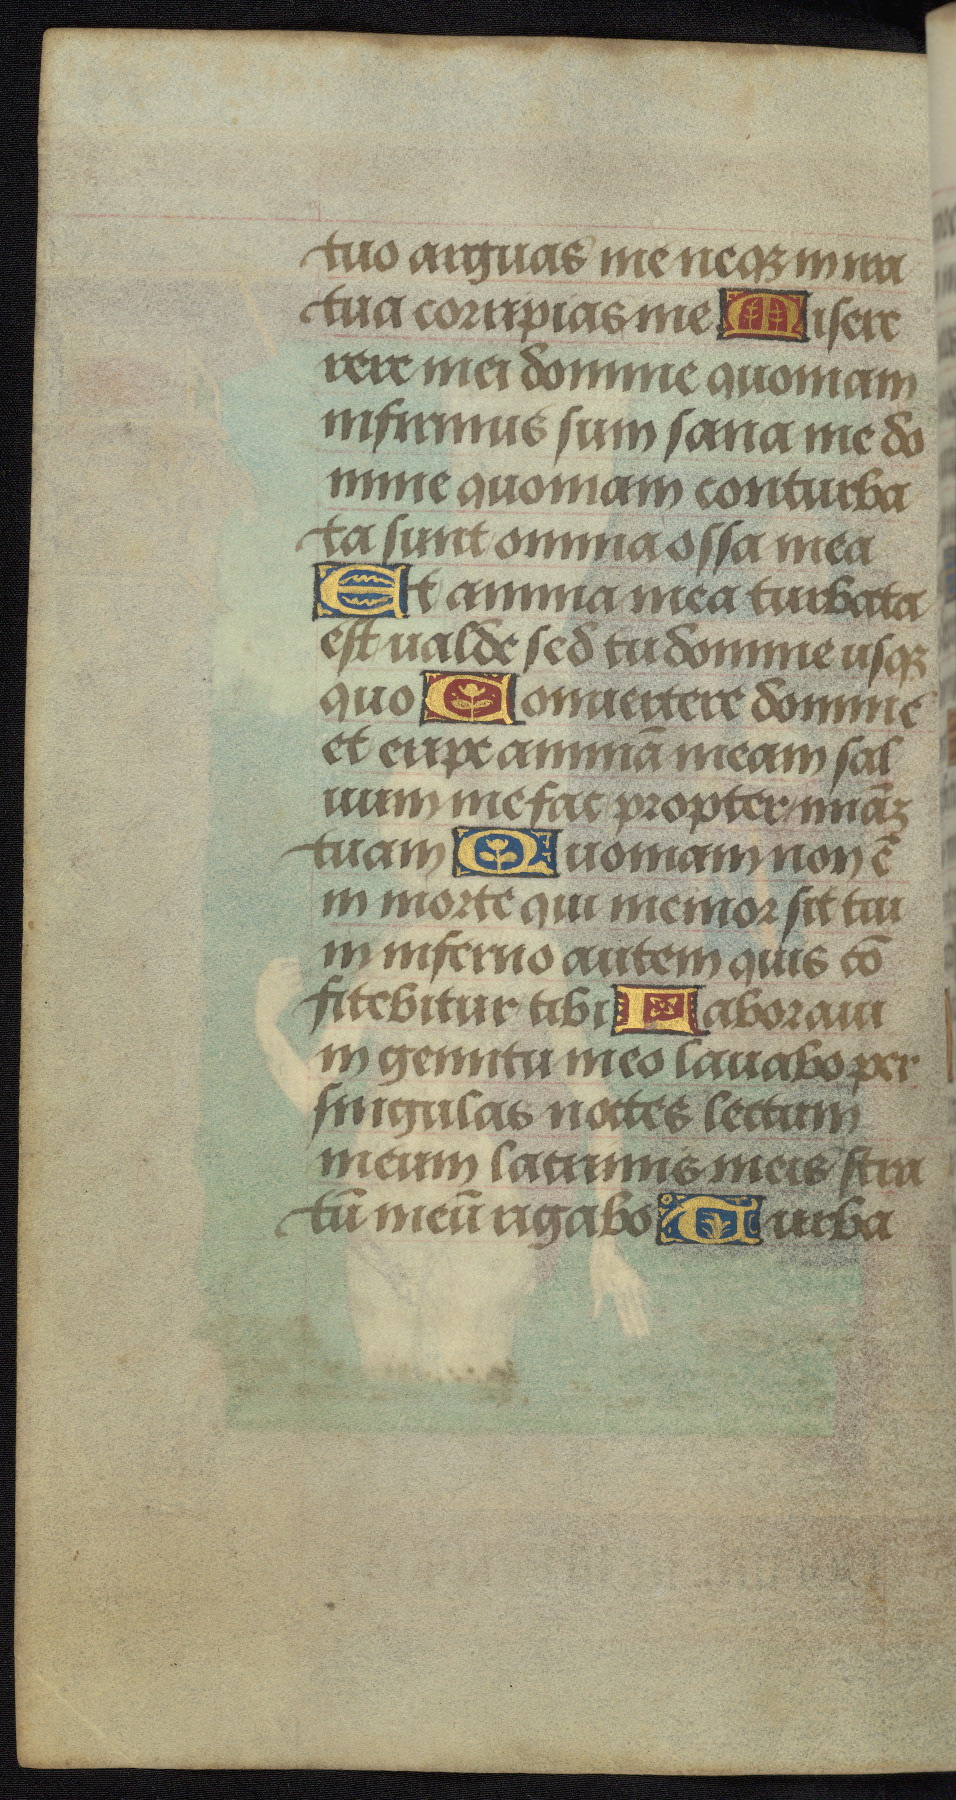 tuo arguas me neqꝫ in ira
tua corripias me Misere
rere mei domine quoniam
infirmus sum sana me do
mine quoniam conturba
ta sunt omnia ossa mea
Et anima mea turbata
est ualde sed tu domine usqꝫ
quo Conuertere domine
et eripe animā meam sal
uum me fac propter miāꝫ
tuam Quoniam non ē
in morte qui memor sit tui
in inferno autem quis cō
fitebitur tibi Laboraui
in gemitu meo lauabo per
singulas noctes lectum
meum lacrimis meis stra
tū meū rigabo Turba